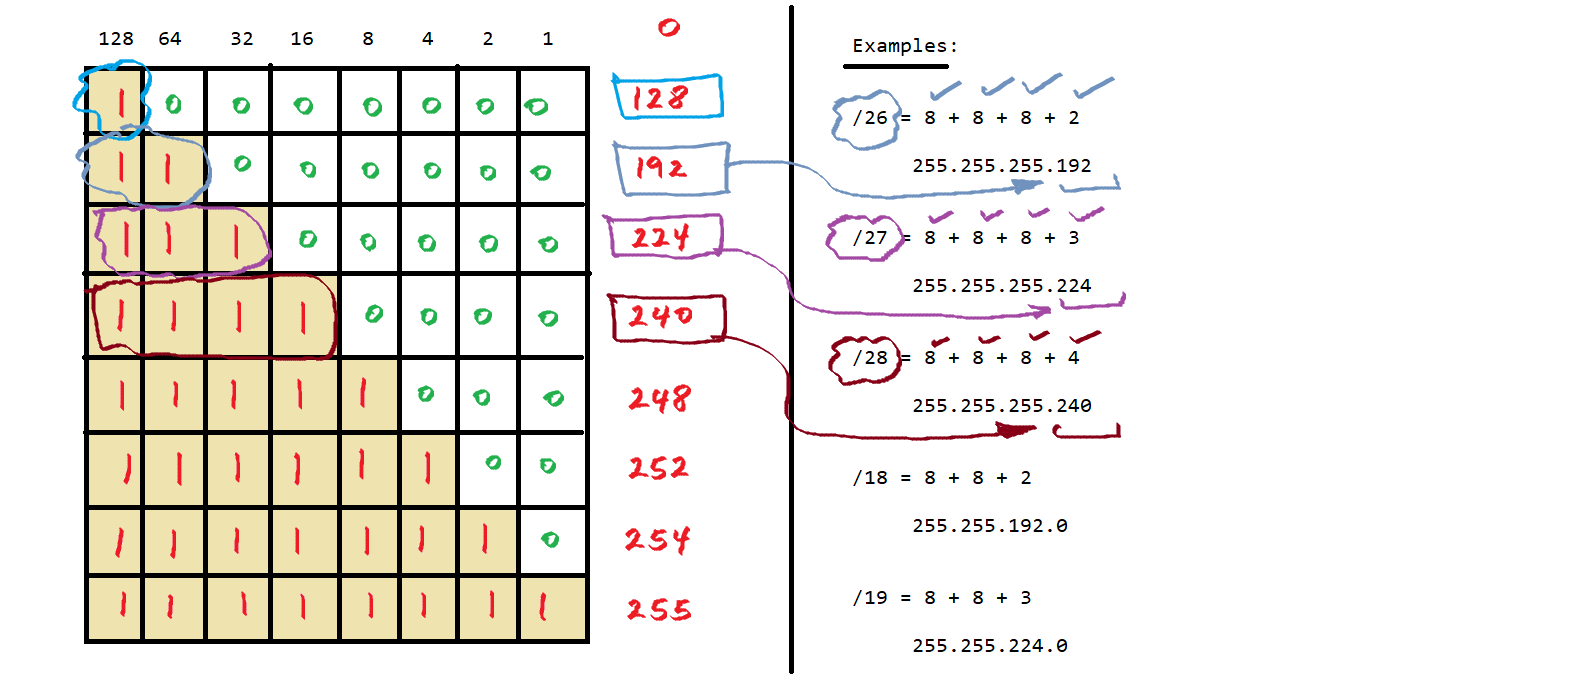 128 64 32 16 8 4 2 1 0
1 0 0 0 0 0 0 0 128
1 1 0 0 0 0 0 0 192
1 1 1 0 0 0 0 0 224
1 1 1 1 0 0 0 0 240
1 1 1 1 1 0 0 0 248
1 1 1 1 1 1 0 0 252
1 1 1 1 1 1 1 0 254
1 1 1 1 1 1 1 1 255
Examples:
/26 = 8 + 8 + 8 + 2
255.255.255.192
/27 = 8 + 8 + 8 + 3
255.255.255.224
/28 = 8 + 8 + 8 + 4
255.255.255.240
/18 = 8 + 8 + 2
255.255.192.0
/19 = 8 + 8 + 3
255.255.224.0